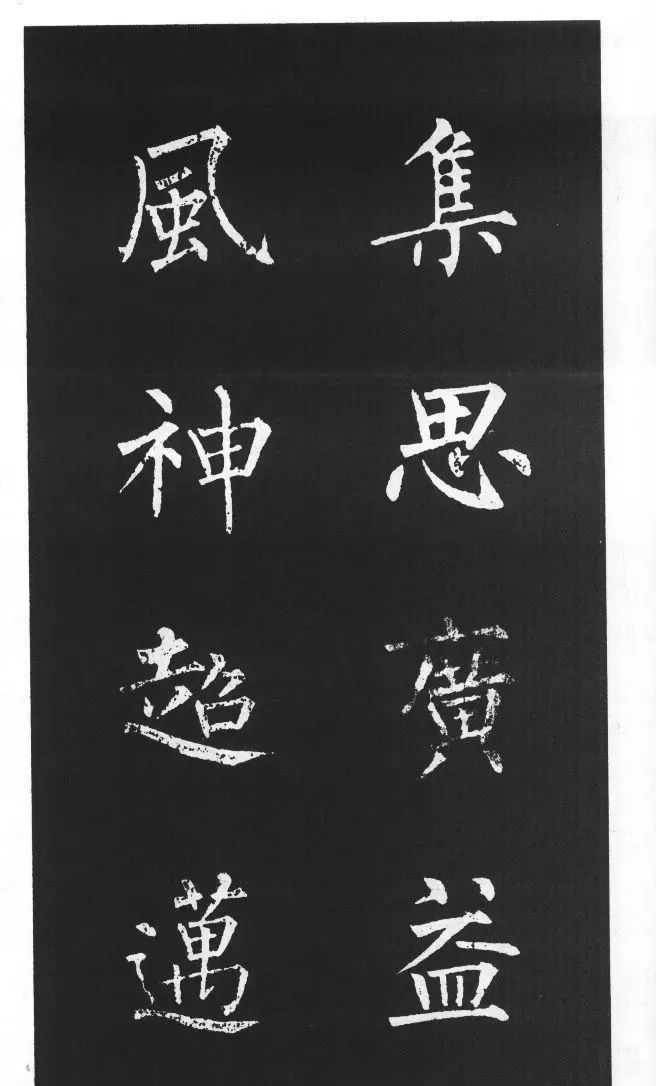 集思廣益
風神超邁